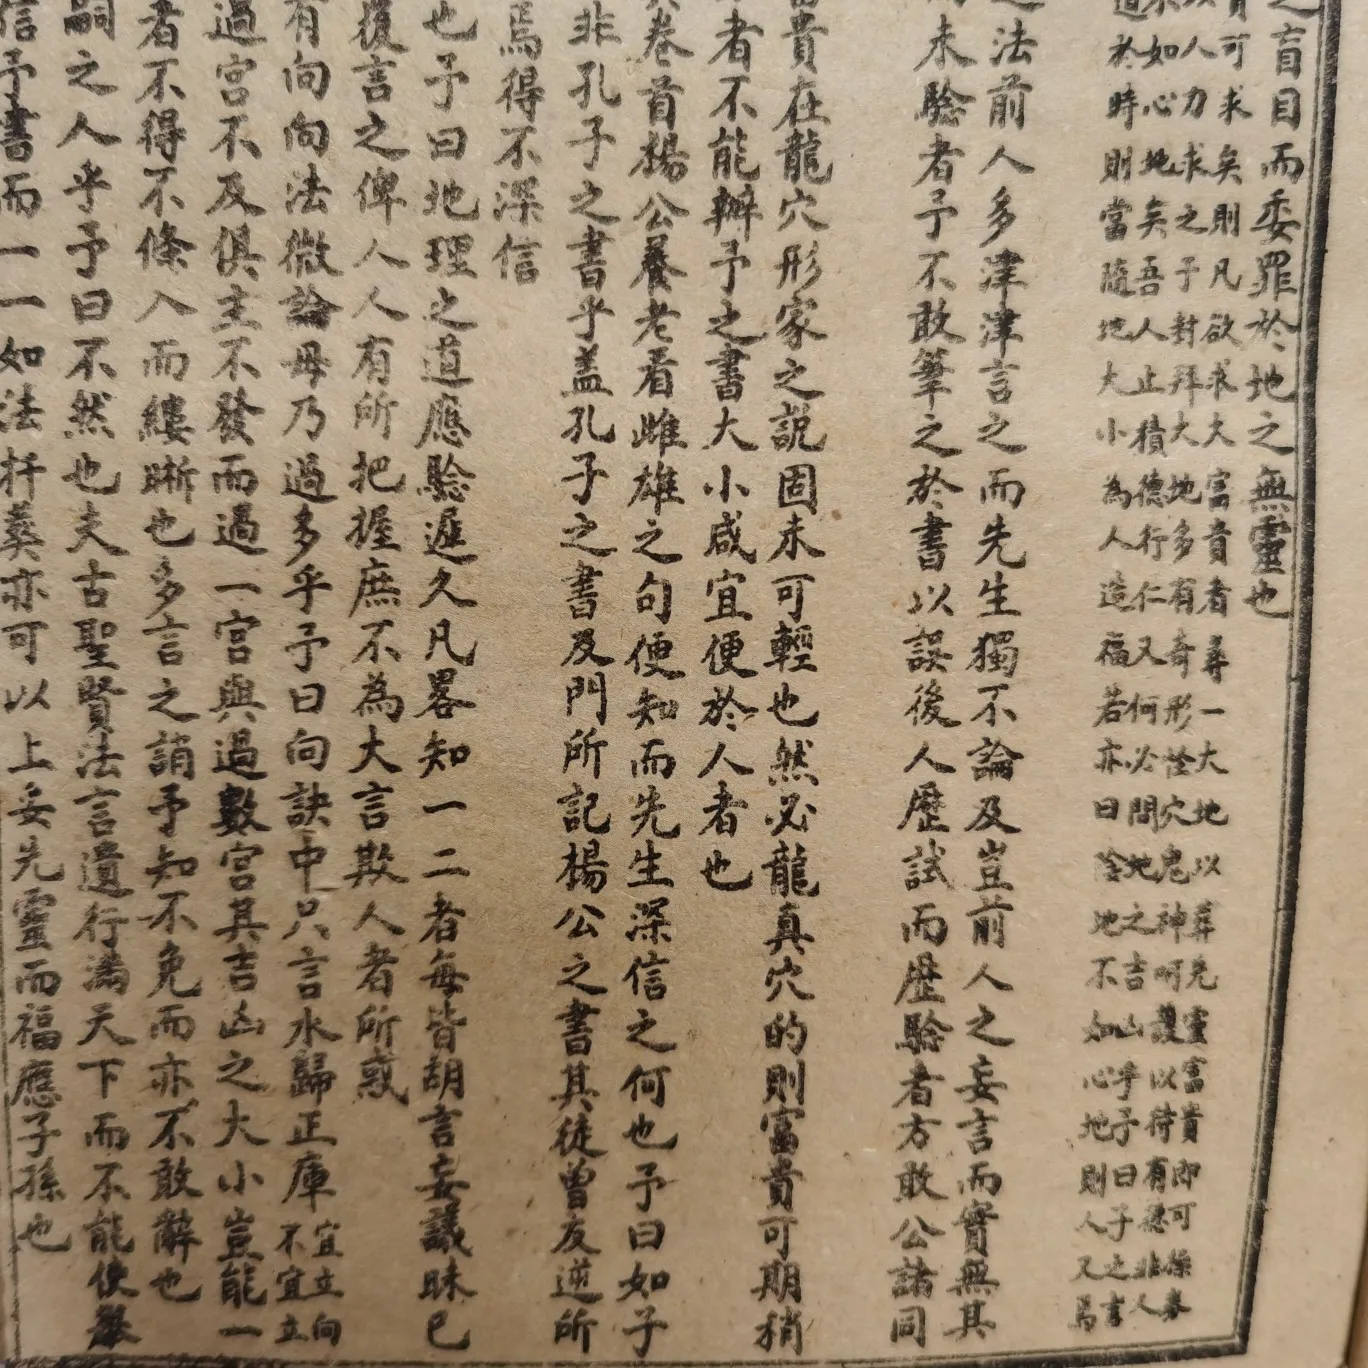 之盲目而委罪於地之無靈也
可求矣則凡欲求大富貴者尋一大地以葬先靈富貴即可操券
以人力求之予封拜大地多有奇形怪穴鬼神呵護以待有德非人
不如心地矣吾人止積德行仁又何必問地之吉凶乎予曰子之言
道於時則當隨地大小為人造福若亦曰陰地不如心地則人又焉
之法前人多津津言之而先生獨不論及豈前人之妄言而實無其
未驗者予不敢筆之於書以誤後人歷試而歷驗者方敢公諸同
富貴在龍穴形家之說固未可輕也然必龍真穴的則富貴可期稍
者不能辦予之書大小咸宜便於人者也
卷首楊公養老看雌雄之句便知而先生深信之何也予曰如子
非孔子之書乎蓋孔子之書及門所記楊公之書其徒曾友逆所
焉得不深信
也予曰地理之道應驗遲久凡畧知一二者每皆胡言妄議昧已
復言之俾人人有所把握庶不為大言欺人者所惑
有向向法微論毋乃過多乎予曰向訣中只言水歸正庫宜立向不宜立
過宮不及俱主不發而過一宮與過數宮其吉凶之大小豈能一
者不得不條入而縷晰也多言之誚予知不免而亦不敢辭也
嗣之人乎予曰不然也夫古聖賢法言遺行滿天下而不能使
信予書而一一如法扦葬亦可以上妥先靈而福應子孫也